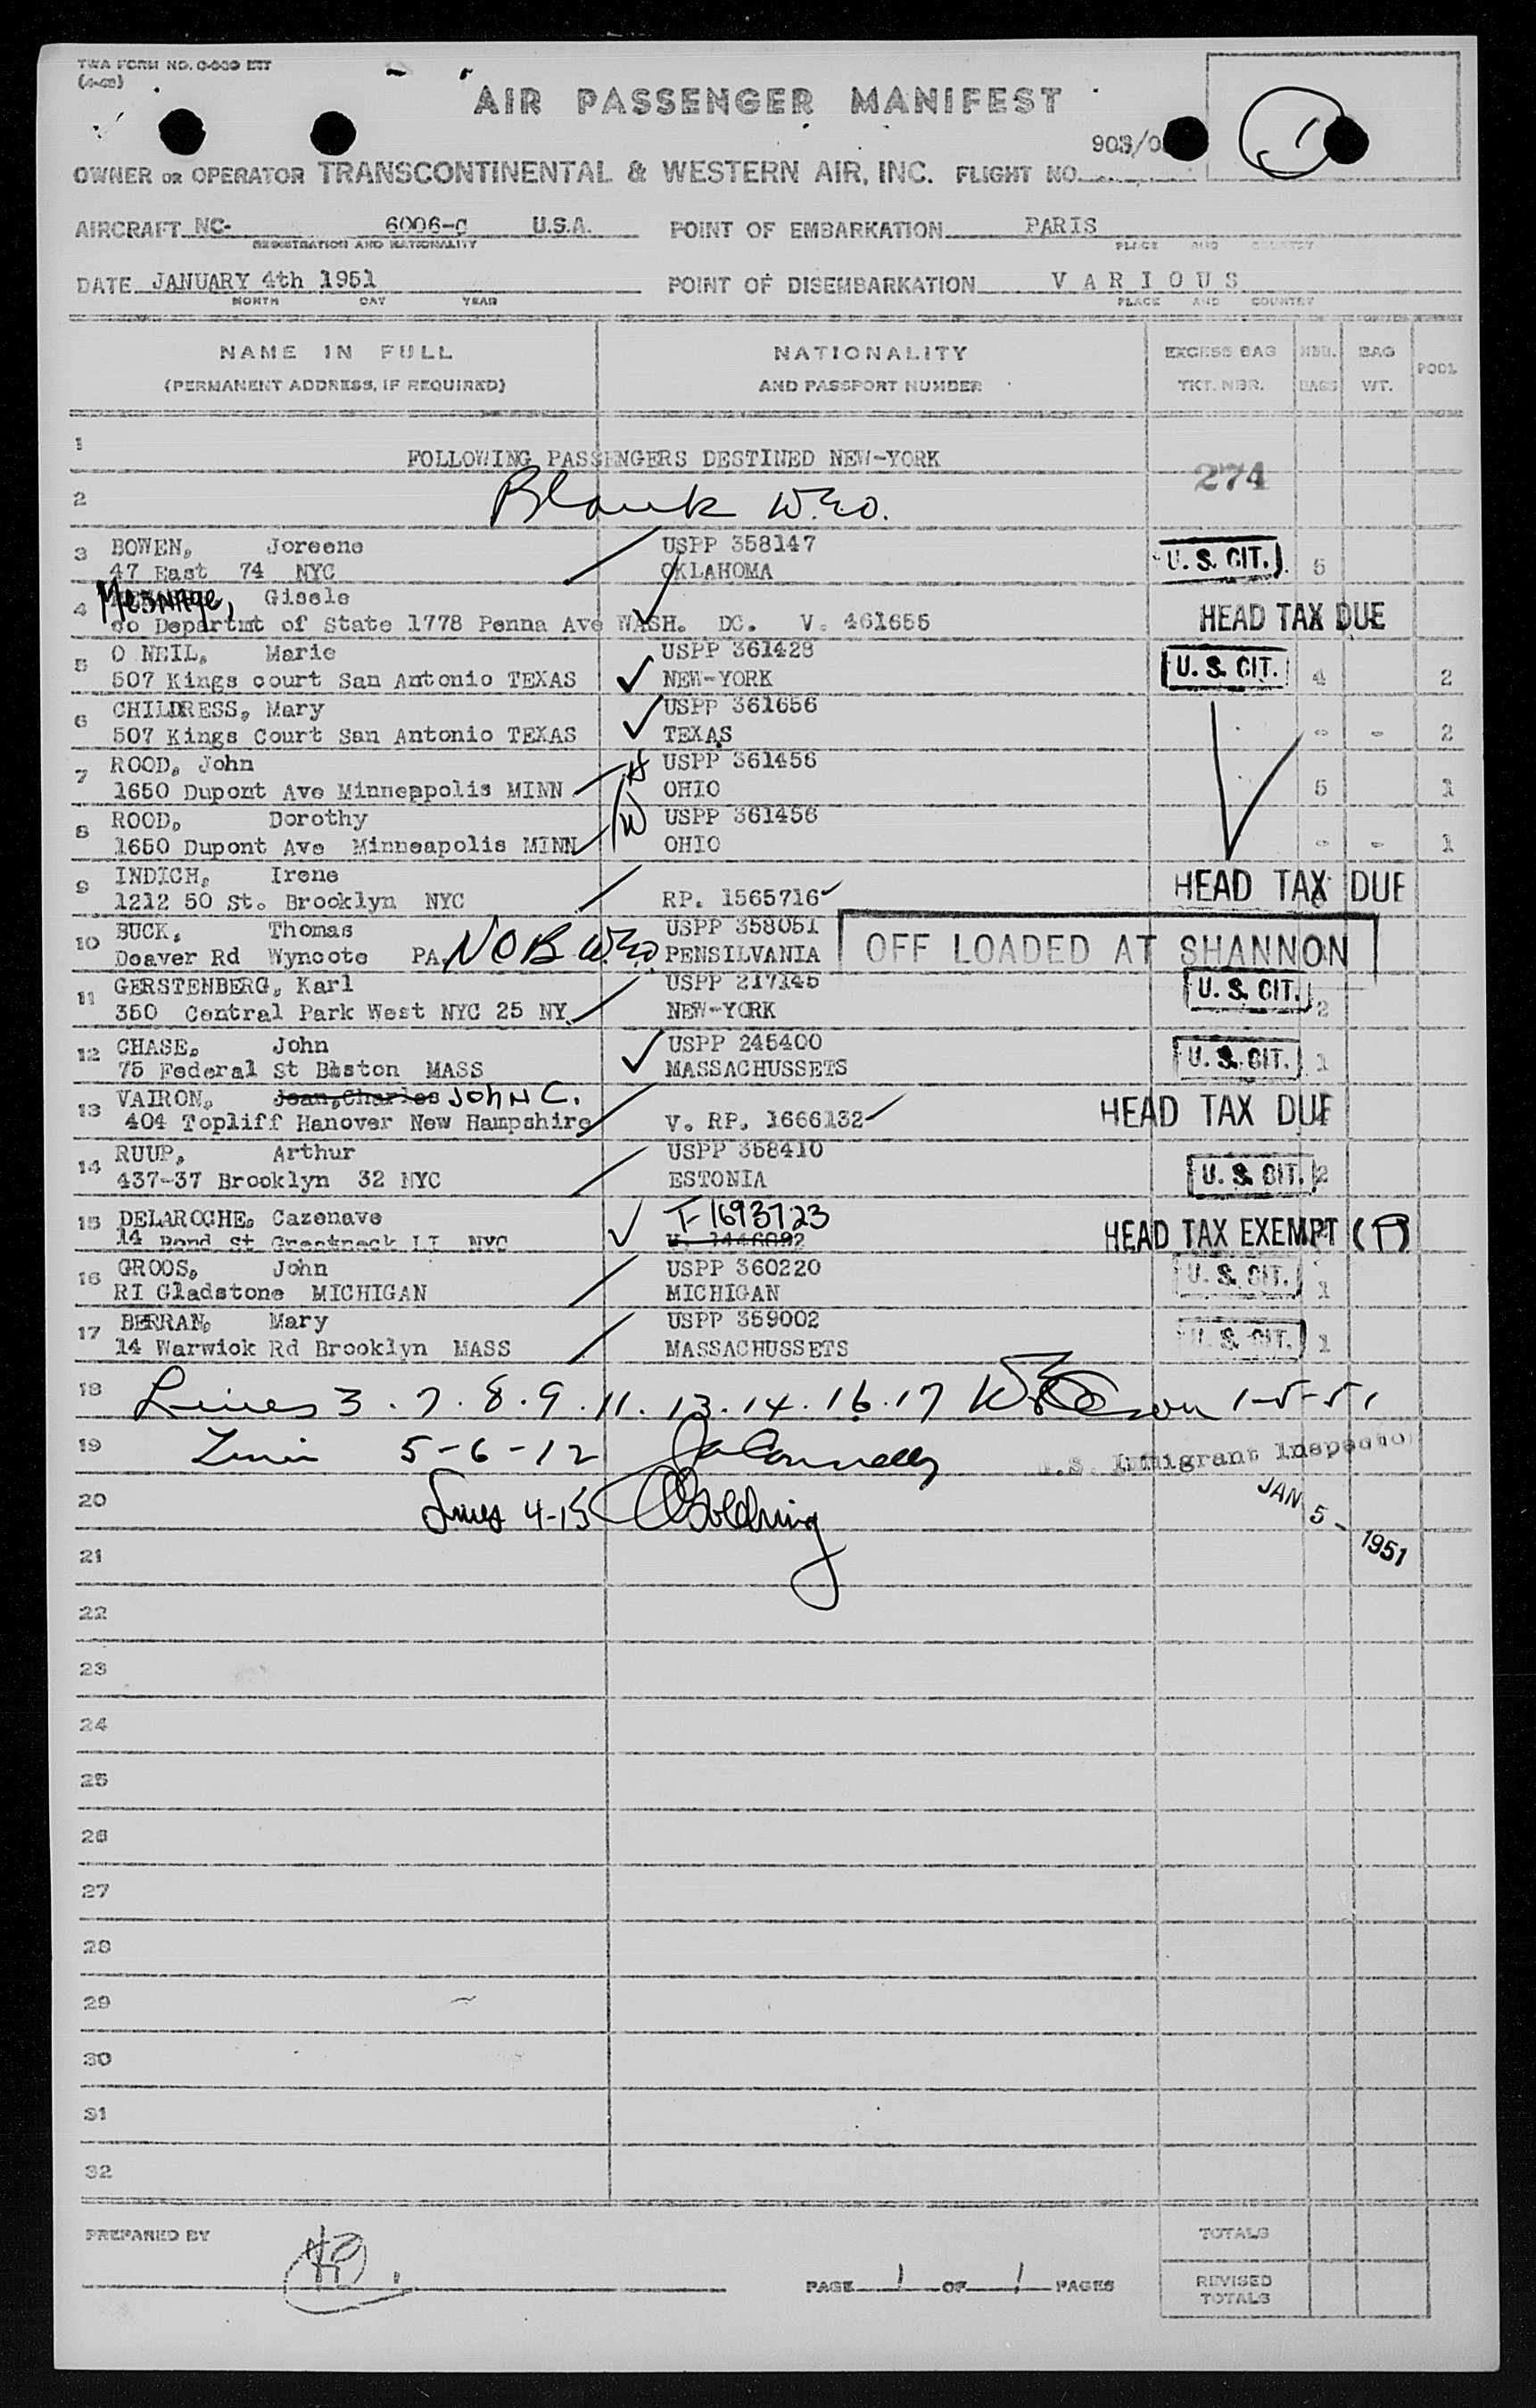 (4-48)
AIR PASSENGER MANIFEST
OWNER OR OPERATOR TRANSCONTINENTAL & WESTERN AIR, INC. FLIGHT NO. 903/0
AIRCRAFT NC- 6006-C U.S.A. POINT OF EMBARKATION PARIS
REGISTRATION AND NATIONALITY PLACE AND COUNTRY
DATE JANUARY 4th 1951 POINT OF DISEMBARKATION V A R I O U S
MONTH DAY YEAR PLACE AND COUNTRY
NAME IN FULL NATIONALITY EXCESS BAG NBR. BAG
(PERMANENT ADDRESS, IF REQUIRED) AND PASSPORT NUMBER TKT. NBR. BAGS WT.
1
FOLLOWING PASSENGERS DESTINED NEW-YORK
274
2 Blank
3 BOWEN, Joreene USPP 358147 U. S. CIT.
47 East 74 NYC OKLAHOMA 5
4 Gisele HEAD TAX DUE
co Departmt of State 1778 Penna Ave WASH. DC. V. 461655
5 O NEIL, Marie USPP 361428 U. S. CIT.
507 Kings court San Antonio TEXAS NEW-YORK 4 2
6 CHILDRESS, Mary USPP 361656
507 Kings Court San Antonio TEXAS TEXAS - - 2
7 ROOD, John H USPP 361456
1650 Dupont Ave Minneppolis MINN OHIO 5 1
8 ROOD, Dorothy W USPP 361456
1650 Dupont Ave Minneapolis MINN OHIO - - 1
9 INDICH, Irene HEAD TAX DUE
1212 50 St. Brooklyn NYC RP. 1565716
10 BUCK, Thomas USPP 358051 OFF LOADED AT SHANNON
Deaver Rd Wyncote PA. NOB PENSILVANIA
11 GERSTENBERG, Karl USPP 217145 U. S. CIT.
350 Central Park West NYC 25 NY NEW-YORK 2
12 CHASE, John USPP 245400 U. S. CIT. 1
75 Federal St Boston MASS MASSACHUSSETS
13 VAIRON, Jean,Charles JOHN C. HEAD TAX DUE
404 Topliff Hanover New Hampshire V. RP. 1666132
14 RUUP, Arthur USPP 358410 U. S. CIT. 2
437-37 Brooklyn 32 NYC ESTONIA
15 DELAROCHE, Cazenave T-1693723 HEAD TAX EXEMPT (T)
14 Bond St Greatneck LI NYC
16 GROOS, John USPP 360220 U. S. CIT. 1
RI Gladstone MICHIGAN MICHIGAN
17 BERRAN, Mary USPP 359002 U. S. CIT. 1
14 Warwick Rd Brooklyn MASS MASSACHUSSETS
18 Lines 3 . 7 . 8 . 9 . 11 . 13 . 14 . 16 . 17 1-5-51
19 5-6-12 U.S. Immigrant Inspector
20 Lines 4-15 JAN 5 - 1951
21
22
23
24
25
26
27
28
29
30
31
32
PREPARED BY TOTALS
PAGE 1 OF 1 PAGES REVISED
TOTALS